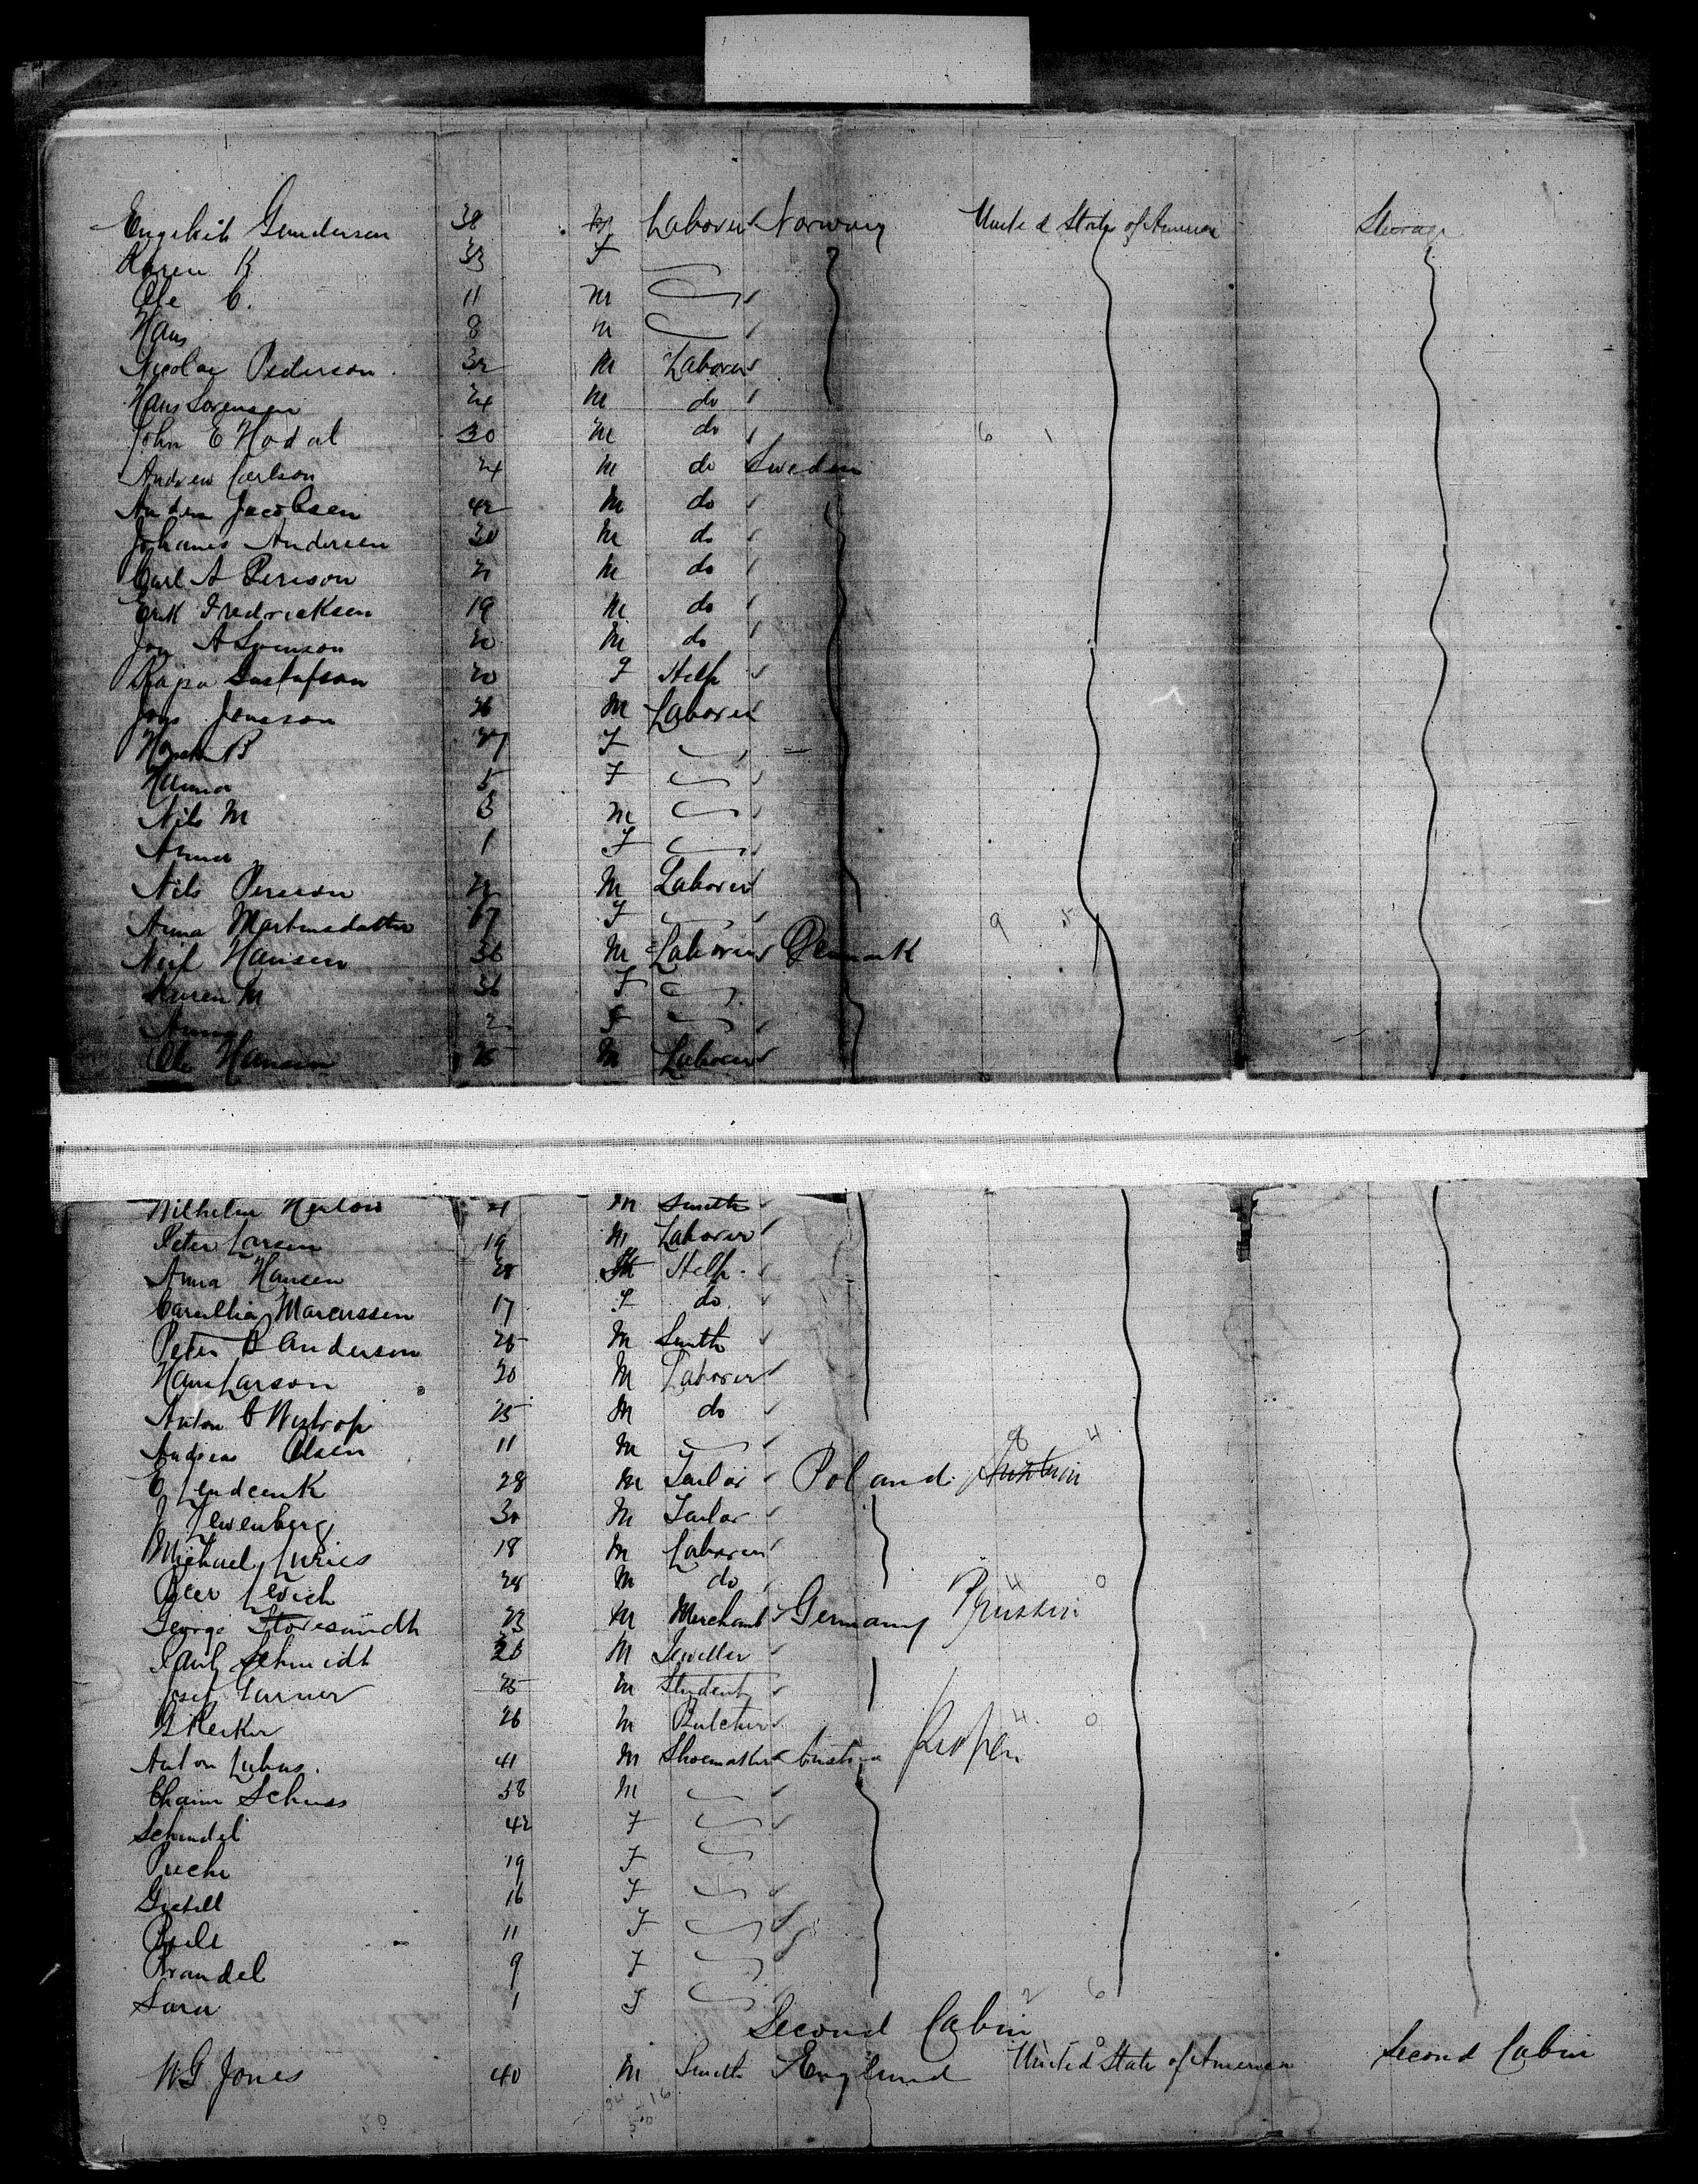 Engebrit Gundersen 38 M Laborer Norway United States of America Steerage
Karen K 33 F
Ole C. 11 M
Hans 8 M
Nicolai Pederson 32 M Laborer
Hans Sorensen 24 M do
John E Hodal 30 M do 6 1
Andrew Carlson 24 M do Sweden
Anders Jacobsen 42 M do
Johanes Andersen 20 M do
Carl A Person 21 M do
Erik Fredricksen 19 M do
A Svenson 20 M do
Gustafson 20 F Help
Jonsson 26 M Laborer
B 27 F
Hanna 5 F
Nils M 3 M
Anna 1 F
Nils Persson 22 M Laborer
Anna Martinsdatter 67 F 9 5
Neil Hansen 36 M Laborer Denmark
Karen M 36 F
Anna 2 F
Ole Hansen 25 M Laborer
Wilhelm 21 M Smith
Peter Larsen 19 M Laborer
Anna Hansen 28 F Help
Marcussen 17 F do
Peter B Anderson 25 M Smith
Hans Larson 20 M Laborer
Anton C 25 M do
Andreas Olsen 11 M 8 4
E 28 M Tailor Poland
J Lewenberg 30 M Tailor
Michael Luries 18 M Laborer
Levich 28 M do 4 0
George 23 M Merchant Germany Prussia
Paul Schmidt 26 M Jeweller
Josef 25 M Student
G 26 M Butcher 4 0
Anton Lubas. 41 M Shoemaker Austria
Chaim Schuss 38 M
Scheindel 42 F
19 F
16 F
11 F
Brandel 9 F
Sara 1 F 2 6
Second Cabin
W G Jones 40 M Smith England United State of America Second Cabin